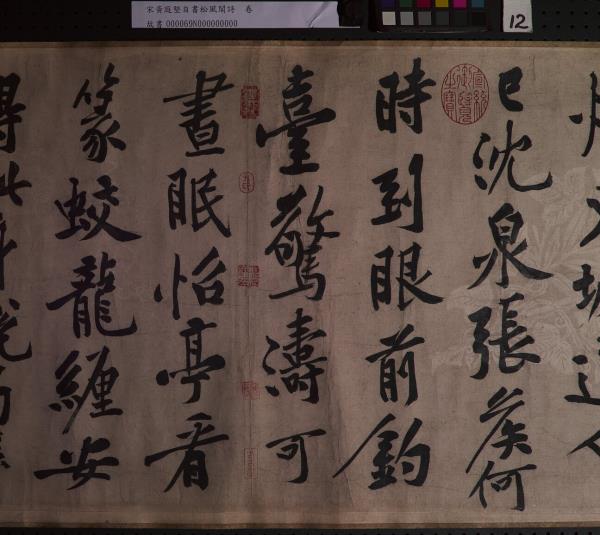 宋黃庭堅自書松風閣詩　卷
故書 000069N000000000
12
坡道人
已沈泉張矦何
時到眼前釣
臺驚濤可
晝眠怡亭看
篆蛟龍纏安
得此身脫拘